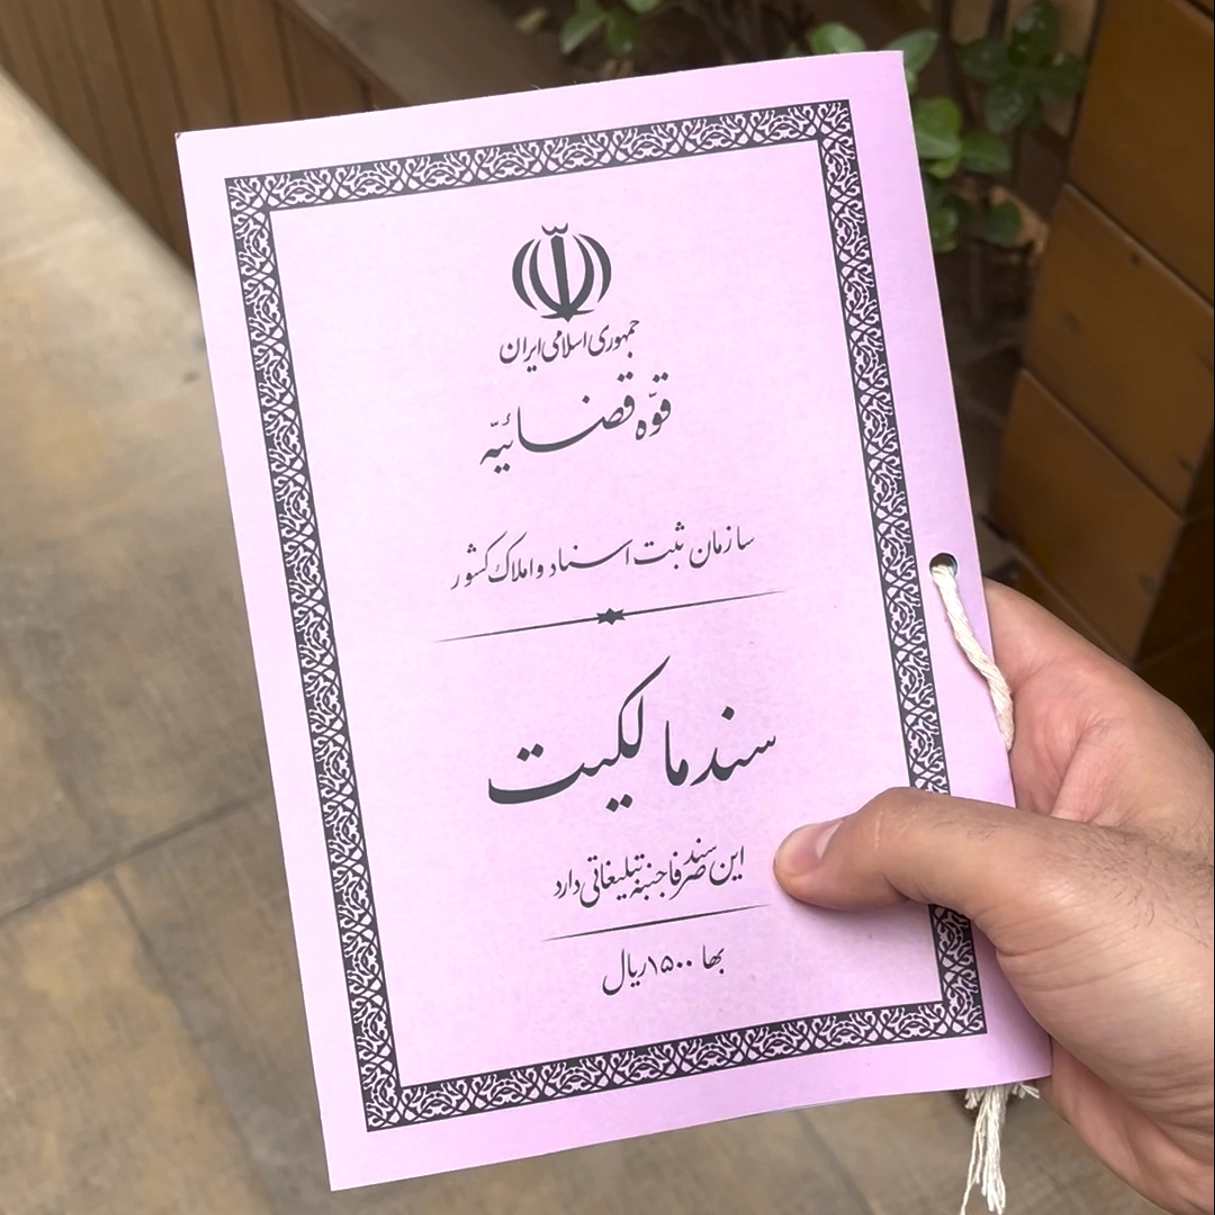 جمهوری اسلامی ایران
قوّه قضائیّه
سازمان ثبت اسناد و املاک کشور
سند مالکیت
این سند صرفا جنبه تبلیغاتی دارد
بها ۱۵۰۰ ریال